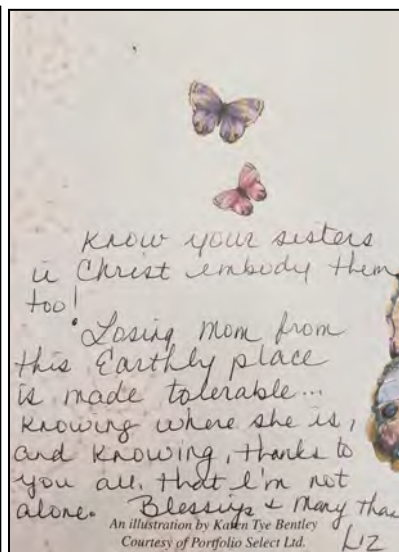 Know your sisters
in Christ embody them
too!
Losing Mom from
this Earthly place
is made tolerable...
knowing where she is,
and knowing, thanks to
you all, that I'm not
alone. Blessings & Many than
An illustration by Karen Tye Bentley
Courtesy of Portfolio Select Ltd.
Liz